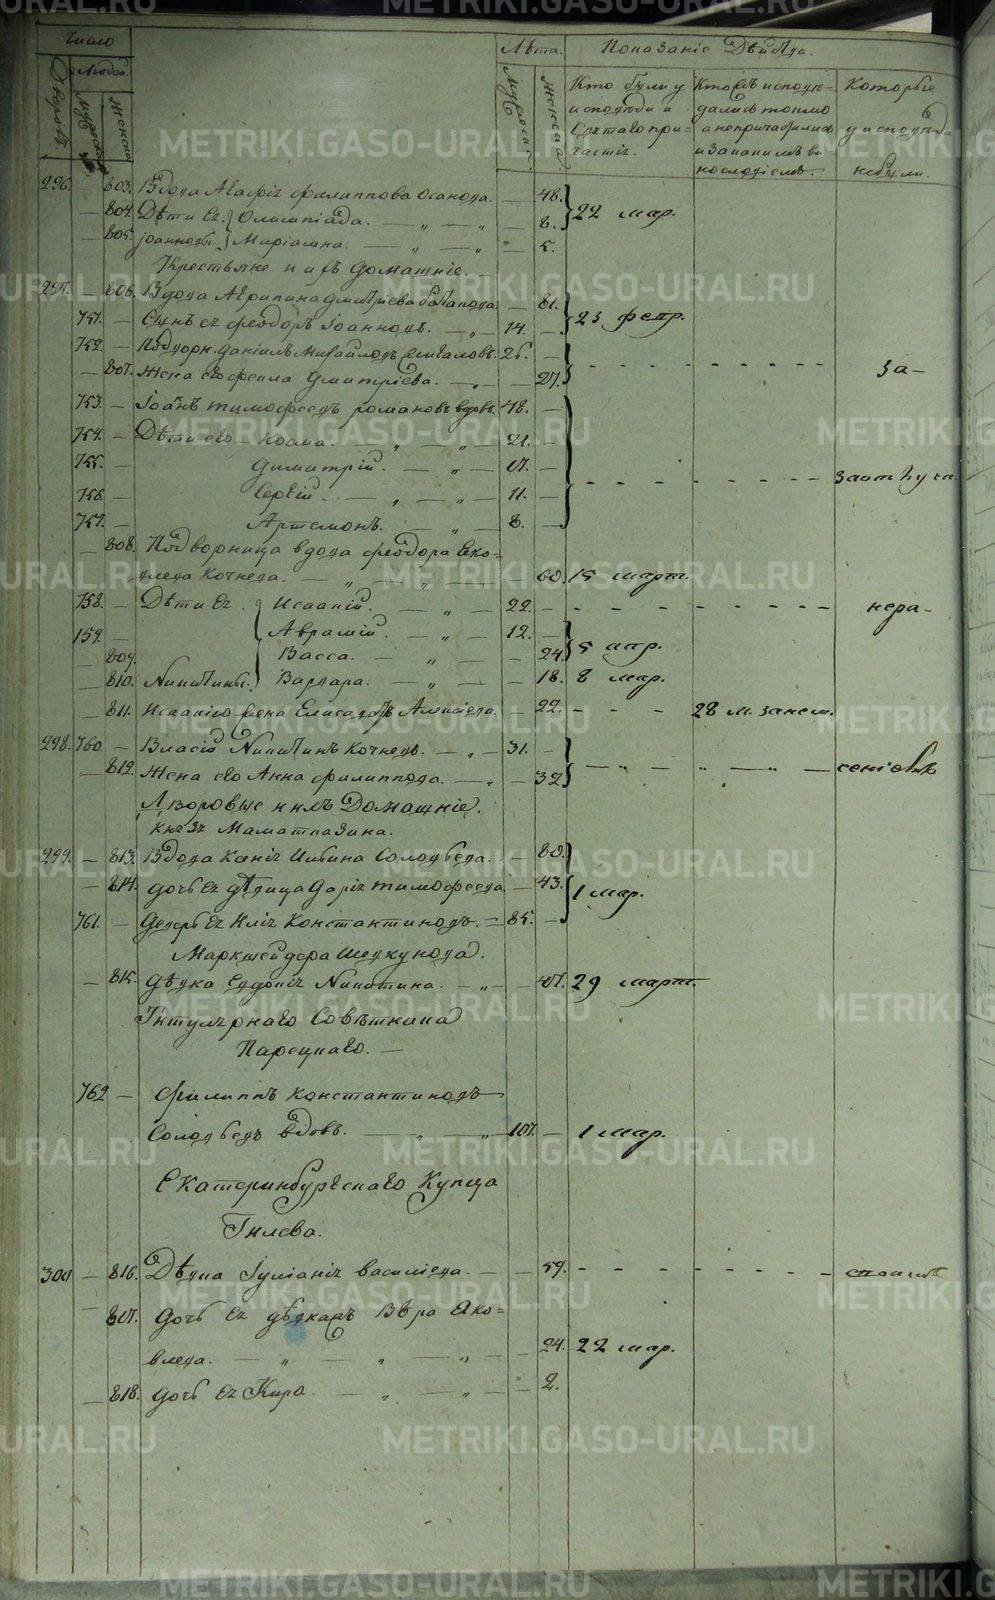 METRIKI.GASO-URAL.RU
Число
Людей
Дворовъ
Мужеска
Женска
Лѣта.
Мужеска
Женска
Показаніе Дѣйства.
Кто были у исповѣди и Святаго причастія.
Кто исповѣдались токмо а непричастились и за какимъ винословіемъ.
Которые у исповѣди небыли.
296. — 803. Вдова Агафія Филиппова — 48. 22 мар.
— 804. Дѣти ея Олимпіада. — „ — „ — 8.
— 805. Іоанновы. Маріамна. — „ — „ — 5.
Крестьяне и ихъ домашніе.
297. — 806. Вдова Агрипина Дмитріева — 81. 23 февр.
751. — Сынъ ея Феодоръ Іоанновъ. — „ — 14. —
752. — Подворн. Даніилъ Михайловъ 26. —
— 807. Жена его Фекла Дмитріева. — „ — 27. за-
753. — Іоанъ Тимофеевъ Романовъ вдовъ. 48. —
754. — Дѣти его Косма. — „ — „ — 21. —
755. — Димитрій. — „ — 17. —
756. — Сергій. — „ — „ — 11. — заотлуч.
757. — Артемонъ. — „ — 8. —
— 808. Подворница вдова Феодора Яко-
влева Кочнева. — „ — „ — 60. 15 март.
758. — Дѣти ея Исаакій. — „ — 22. — нера-
759. — Аврамій. — „ — 12. — 5 апр.
— 809. Васса. — „ — 24.
— 810. Никитины. Варвара. — „ — 18. 8 мар.
— 811. Исаакіго жена Елисаветъ Алексіева. — 22. 28 м.
298. 760. — Власій Никитинъ Кочневъ. — „ — 31. —
— 812. Жена его Анна Филиппова. — „ — 32. — „ — „ — „ — деніемъ
Дворовые и ихъ Домашніе.
Маматказина.
299. — 813. Вдова Ксенія Ильина Соловьева. — 80.
— 814. Дочь ея дѣвица Дарія Тимофеева — 43. 1 мар.
761. — Деверь ея Илія Константиновъ. — 85. —
Маркшейдера Шевкунова.
— 815. Дѣвка Евдокія Никитина. — „ — 47. 29 март.
Титулярнаго Совѣтника
Нарецкаго. —
762 — Филиппъ Константиновъ
Соловьевъ вдовъ. — „ — „ — 107. — 1 мар.
Екатеринбургскаго Купца
Гилева.
300 — 816. Дѣвка Іуліанія Василіева. — — 59.
817. Дочь ея дѣвка Вѣра Яко-
влева. — „ — „ — „ — 24. 22 мар.
— 818. Дочь ея Кира. — „ — „ — 2.